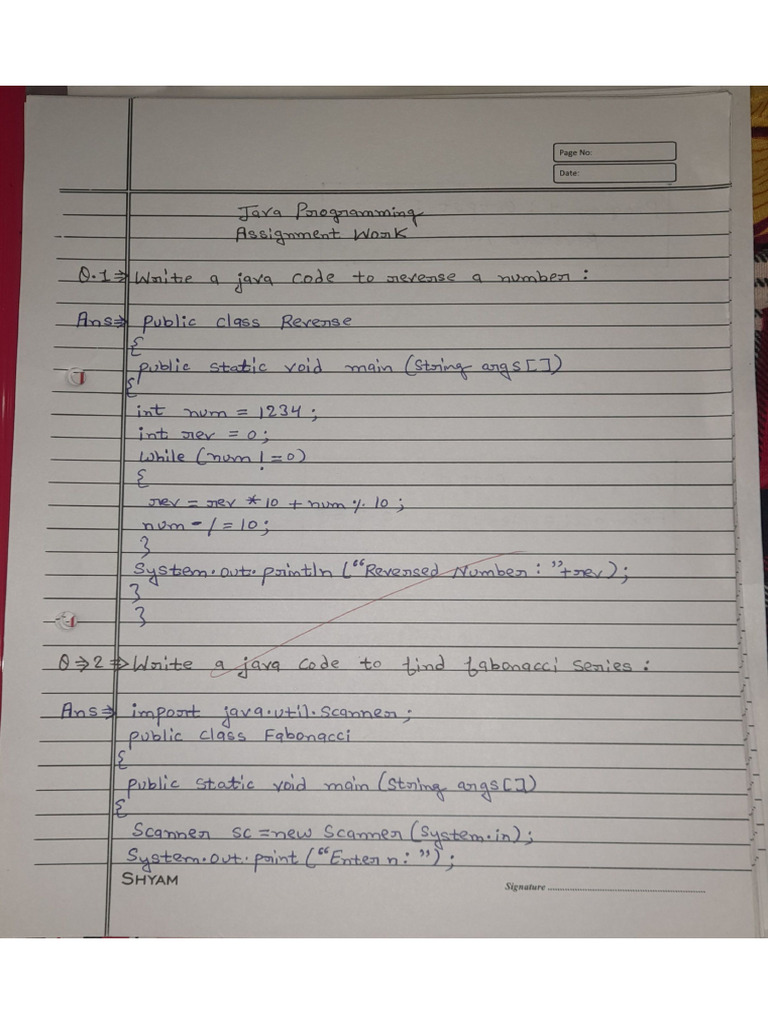 Page No:
Date:
Java Programming
Assignment Work
Q.1⇒ Write a java code to reverse a number :
Ans⇒ Public class Reverse
{
public static void main (String args[])
{
int num = 1234 ;
int rev = 0;
While (num != 0)
{
rev = rev * 10 + num % 10 ;
num -/= 10;
}
System.out.println (“Reversed Number : ”+rev);
}
}
Q⇒2⇒ Write a java code to find fabonacci series :
Ans⇒ import java.util.Scanner ;
public class Fabonacci
{
public static void main (String args[])
{
Scanner sc =new Scanner (System.in);
System.out.print (“Enter n: ”) ;
SHYAM
Signature